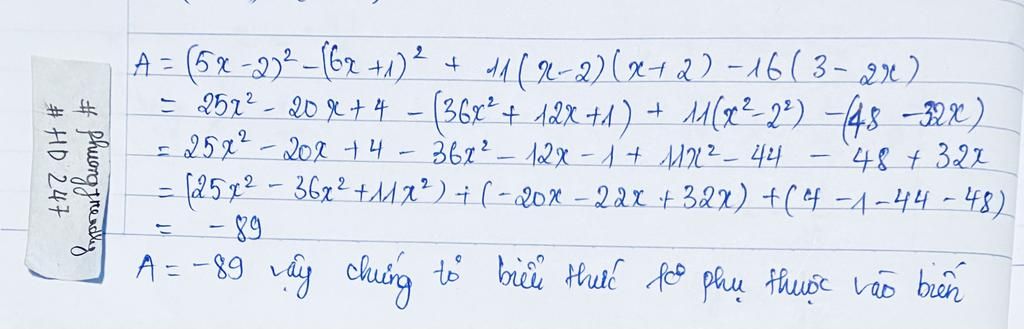 A = (5x - 2)² - (6x + 1)² + 11(x - 2)(x + 2) - 16(3 - 2x)
= 25x² - 20x + 4 - (36x² + 12x + 1) + 11(x² - 2²) - (48 - 32x)
= 25x² - 20x + 4 - 36x² - 12x - 1 + 11x² - 44 - 48 + 32x
= (25x² - 36x² + 11x²) + (-20x - 22x + 32x) + (4 - 1 - 44 - 48)
= -89
A = -89 vậy chứng tỏ biểu thức ko phụ thuộc vào biến
# HD 247